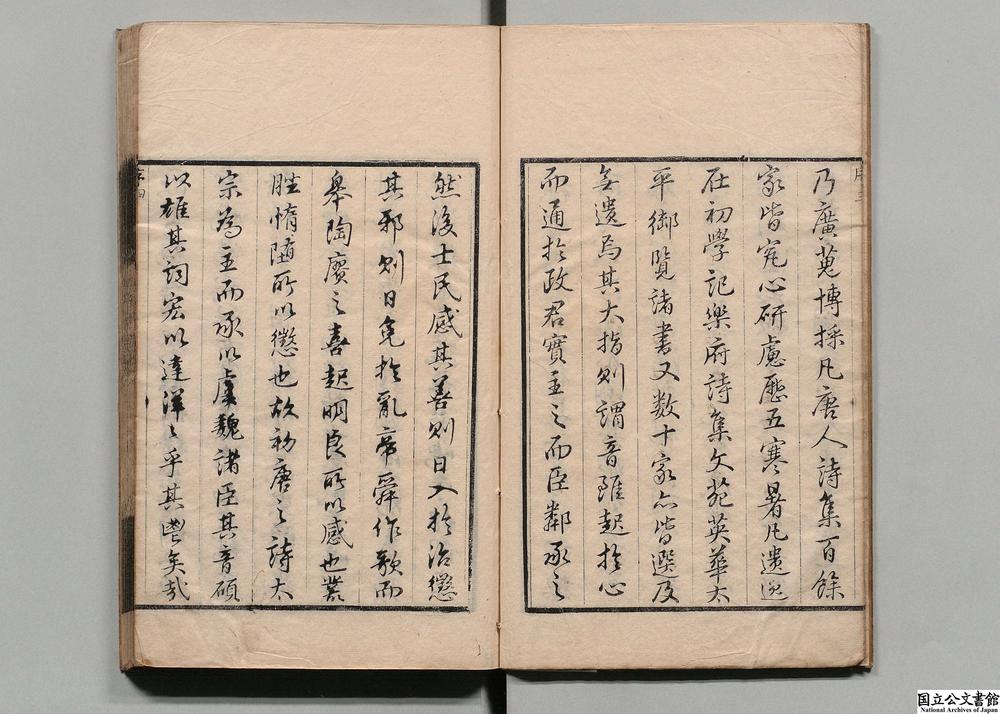 乃廣蒐博採凡唐人詩集百餘
家皆究心研慮歷五寒暑凡遺逸
在初學記樂府詩集文苑英華太
平御覽諸書又数十家亦皆選及
無遺焉其大指則謂音雖起於心
而通於政君實主之而臣鄰承之
序三
然後士民感其善則日入於治懲
其邪則日免於亂帝舜作歌而
皋陶賡之喜起明良所以感也叢
脞惰墮所以懲也故初唐之詩太
宗為主而承以虞魏諸臣其音碩
以雄其詞宏以達洋〻乎其鬯矣哉
序四
国立公文書館
National Archives of Japan